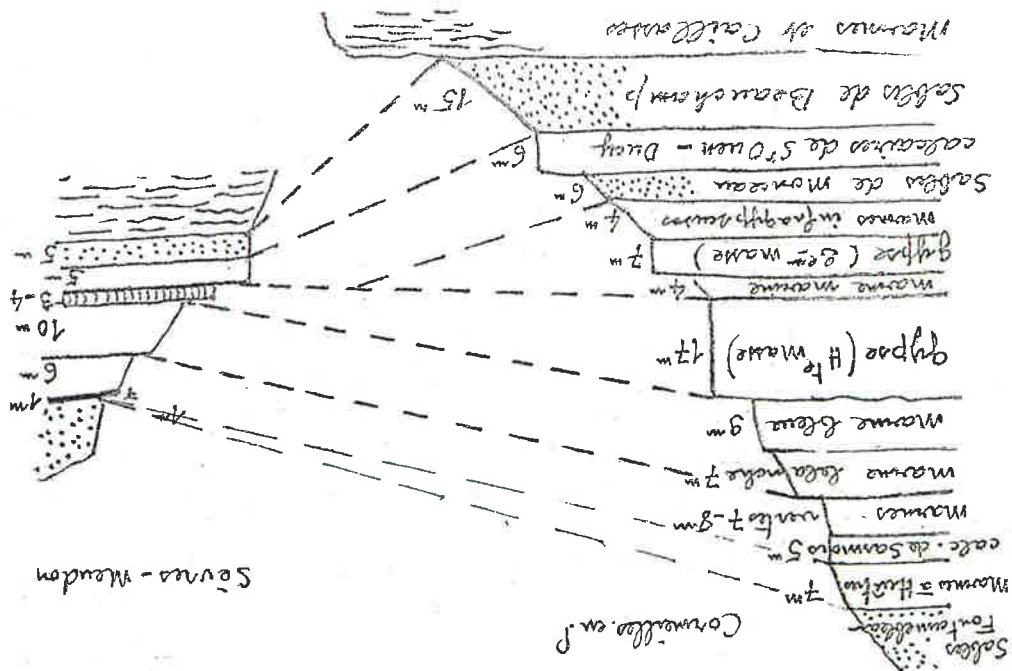 Cormeilles.en P
Sèvres-Meudon
Sables
Fontainebleau
Marnes à Huîtres 7m
calc. de Sannois 5m
marnes vertes 7-8m
marne blanche 7m
marne bleue 9m
gypse (Hte masse) 17m
marne marine 4m
gypse (2em masse) 7m
marnes infragypseuses 4m
Sables de monceau 6m
calcaires de St Ouen - Ducy 6m
Sables de Beauchamp 15m
Marnes et Caillasses
1m
6m
10m
3-4
5m
5m